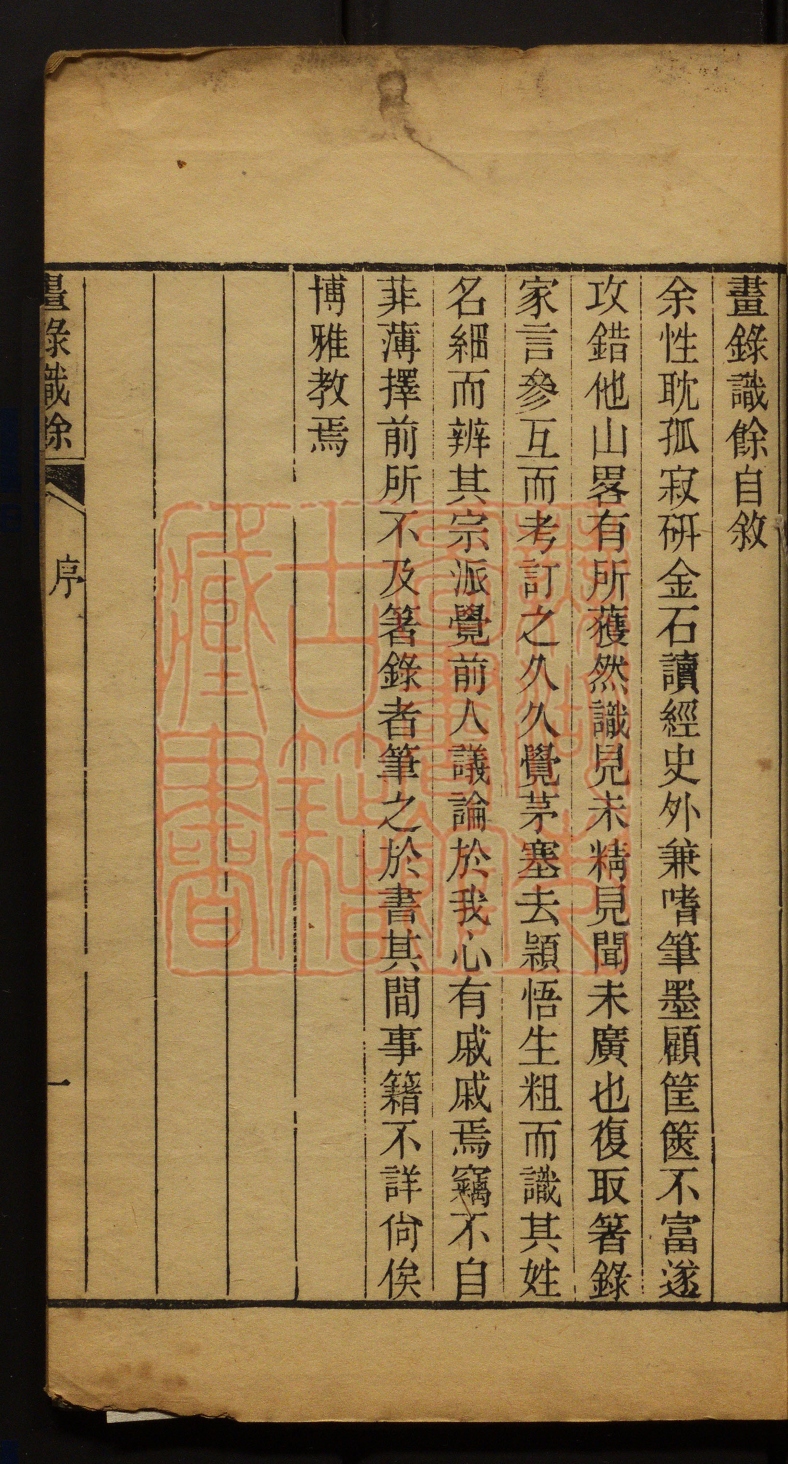 畫錄識餘自敘
余性耽孤寂研金石讀經史外兼嗜筆墨顧筐篋不富遂
攻錯他山畧有所獲然識見未精見聞未廣也復取箸錄
家言參互而考訂之久久覺茅塞去穎悟生粗而識其姓
名細而辨其宗派覺前人議論於我心有戚戚焉竊不自
菲薄擇前所不及箸錄者筆之於書其間事籍不詳尙俟
博雅教焉
畫錄識餘
序
一